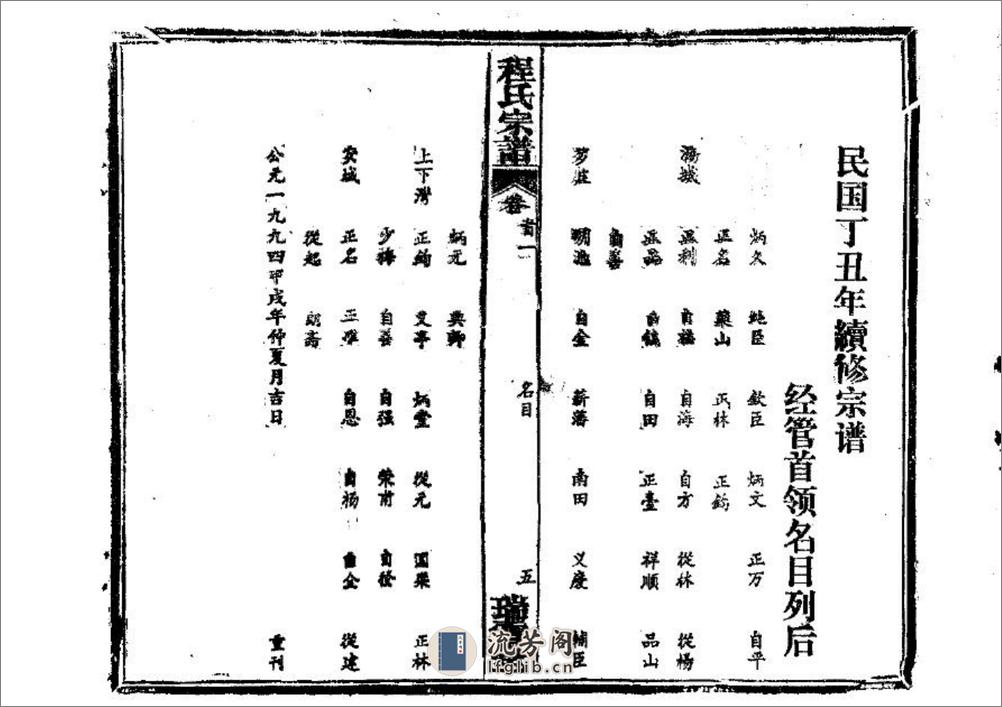 民国丁丑年續修宗谱
经管首领名目列后
炳久 純臣 欽臣 炳文 正万 自平
正名 藥山 正林 正鈞
漪城 正利 自福 自海 自方 從林 從楊
正品 自鎬 自田 正臺 祥順 品山
自善
梦莊 自金 薪藩 南田 义慶 輔臣
程氏宗譜 卷首一 名目 五
炳元 典卿
上下灣 正鈞 艾亭 炳堂 從元 国荣 正林
少梅 自善 自强 荣甫 自發
安城 正名 正雅 自恩 自杨 自金 從建
從起 朗齋
公元一九九四甲戌年仲夏月吉日 重刊
流芳阁
lfglib.cn